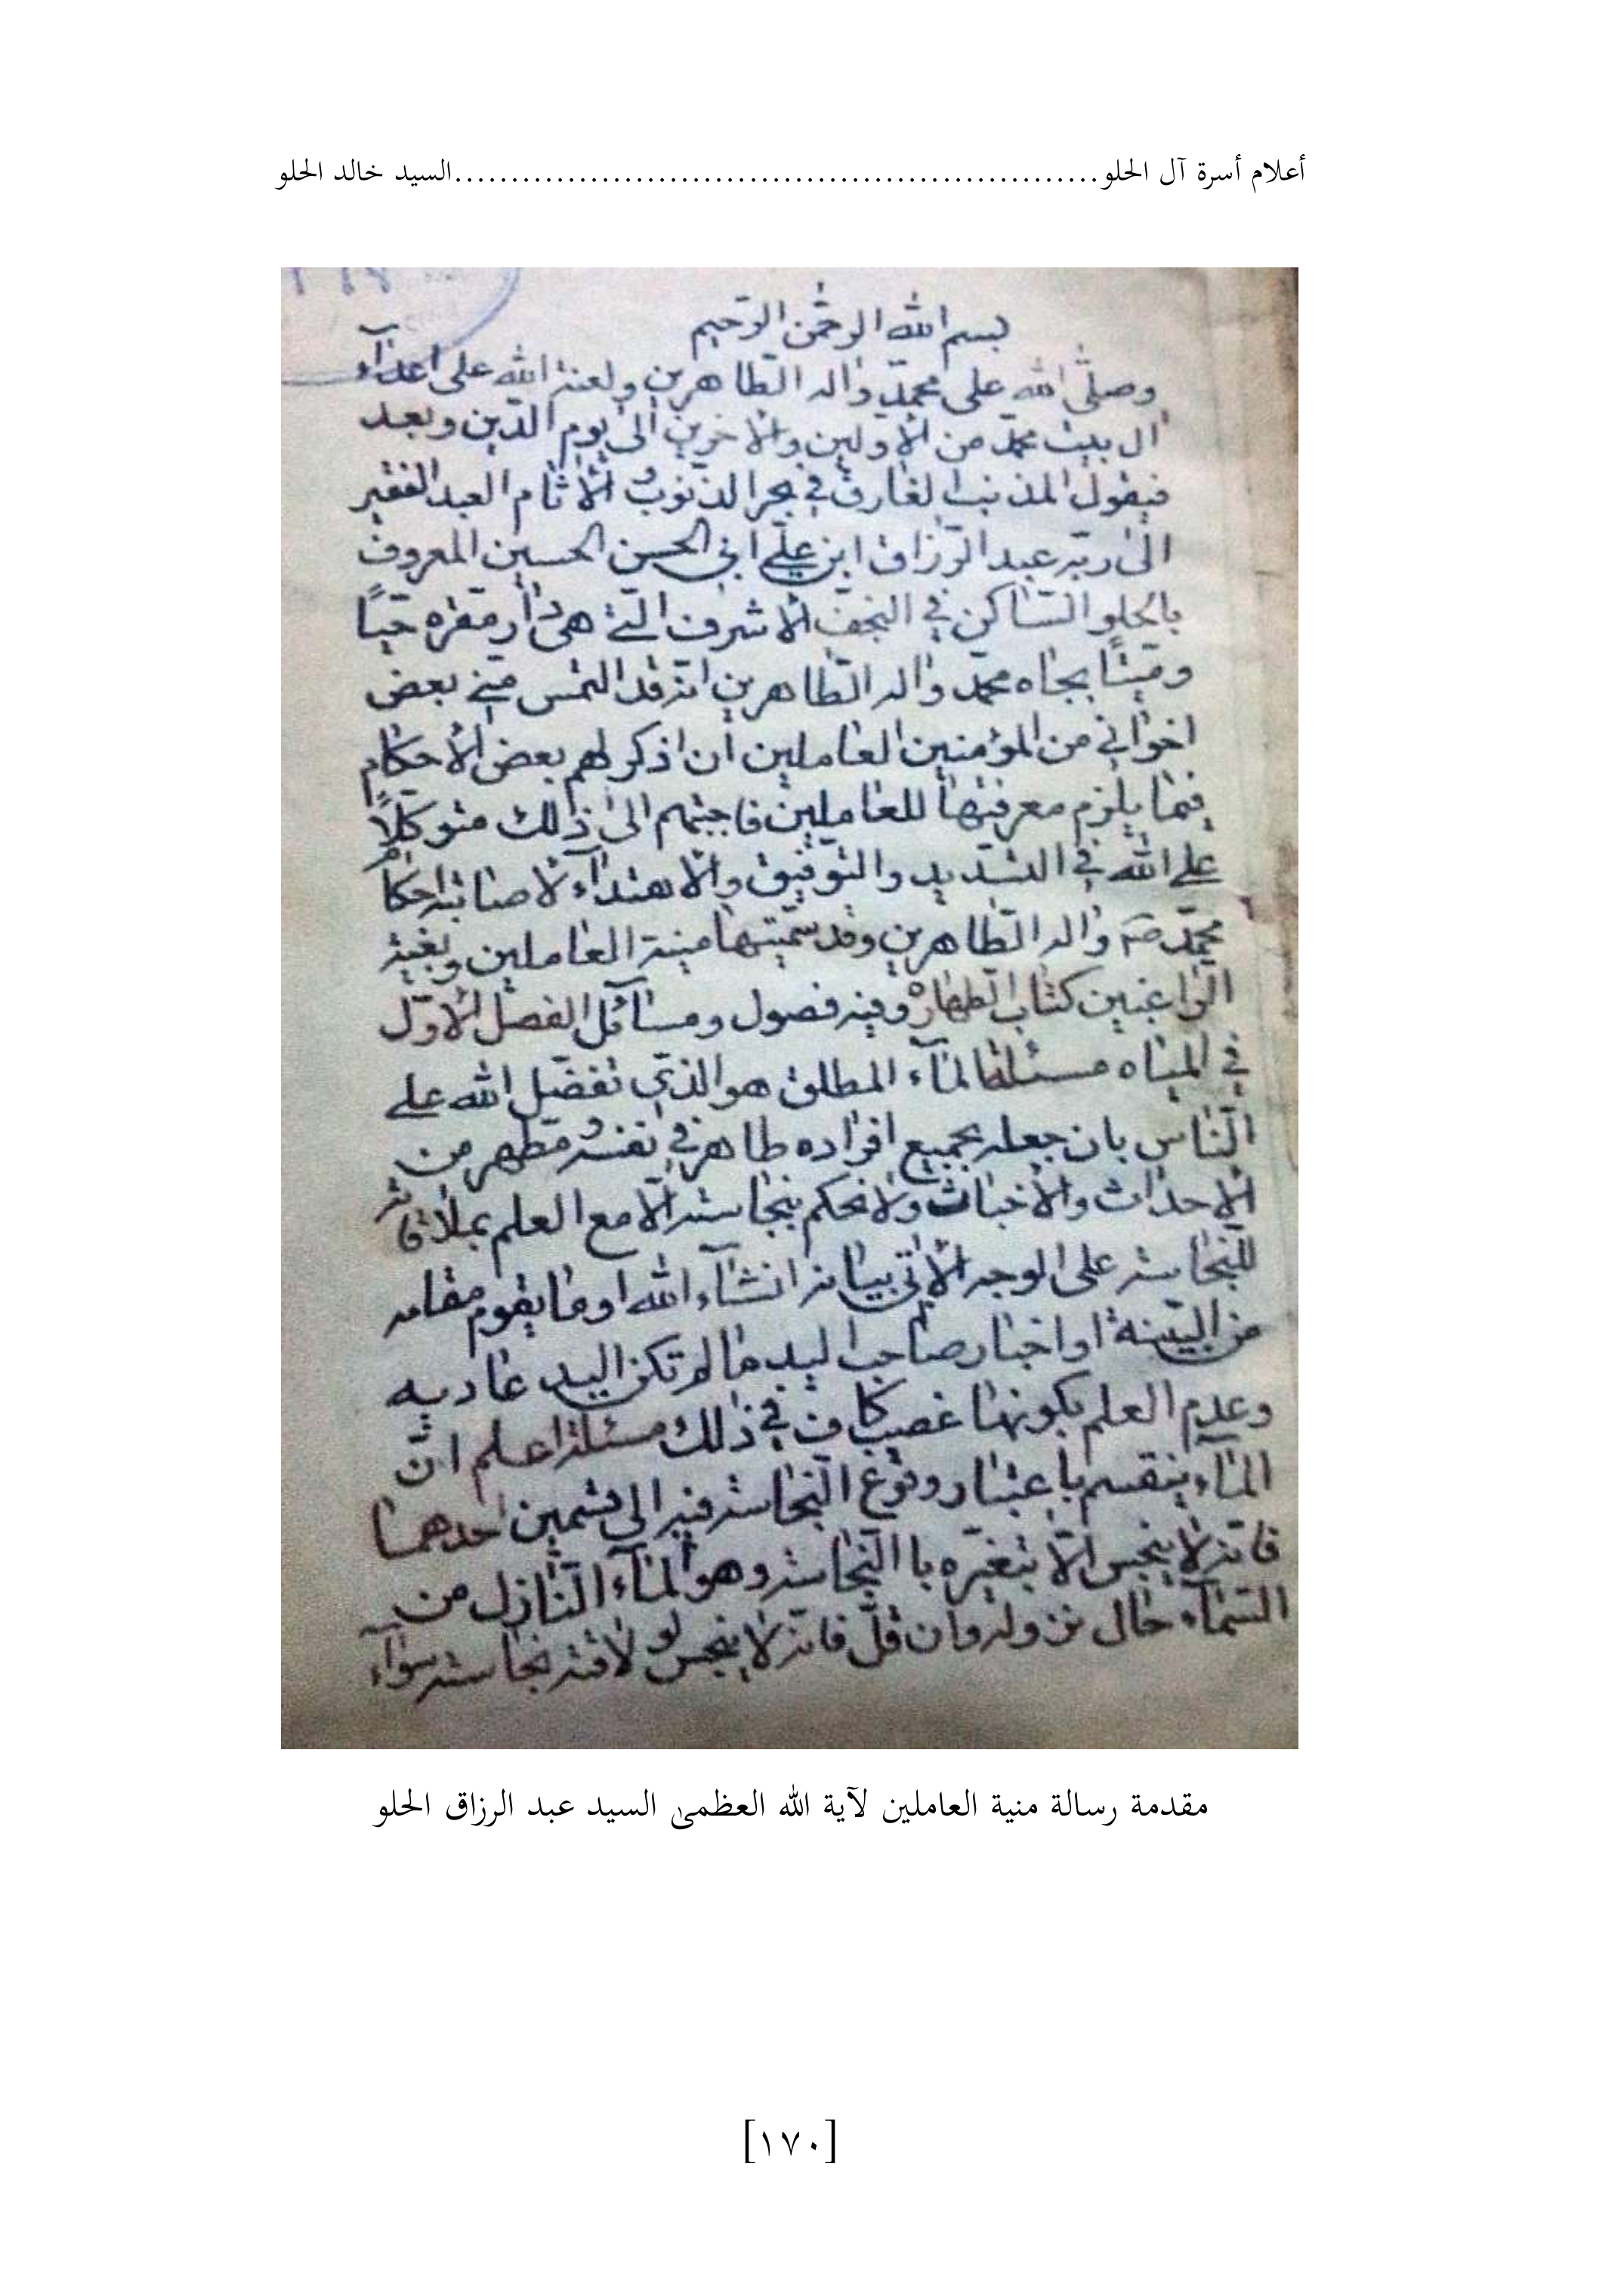 أعلام أسرة آل الحلو.........................................................السيد خالد الحلو
بسم الله الرحمن الرحيم
وصلّى الله على محمّد واله الطّاهرين ولعنة الله على اعدآء
ال بيت محمّد من الاوّلين والاخرين الى يوم الدّين وبعد
فيقول المذنب الغارق في بحر الذّنوب الاثام العبد الفقير
الى ربّه عبد الرّزاق ابن علي ابي الحسن الحسين المعروف
بالحلو السّاكن في النجف الاشرف التي هي دار مقره حيّاً
وميّتاً بجاه محمّد واله الطّاهرين انّه قد التمس منّي بعض
اخواني من المؤمنين العاملين ان اذكر لهم بعض الاحكام
فيما يلزم معرفتها للعاملين فاجبتهم الى ذلك متوكّلاً
على الله في التسديد والتوفيق والاهتدآء لاصابة احكام
محمّد ص واله الطّاهرين وقد سمّيتها منية العاملين وبغية
الرّاغبين كتاب الطهارة وفيه فصول ومسآئل الفصل الاوّل
في المياه مسئلة المآء المطلق هو الذي تفضّل الله على
النّاس بان جعله بجميع افراده طاهر في نفسه ومطهر من
الاحداث والاخباث ولا نحكم بنجاسته الّا مع العلم بملاقاته
للنّجاسة على الوجه الاتي بيانه انشآء الله او ما يقوم مقامه
من البيّنة او اخبار صاحب اليد ما لم تكن اليد عادية
وعدم العلم بكونها غصب كاف في ذلك مسئلة اعلم انّ
المآء ينقسم باعتبار وقوع النّجاسة فيه الى قسمين احدهما
فانّه لا ينجس الّا بتغيّره باالنّجاسة وهو المآء النّازل من
السّمآء حال نزوله وان قلّ فانّه لا ينجس لو لاقته نجاسة سوآء
مقدمة رسالة منية العاملين لآية الله العظمىٰ السيد عبد الرزاق الحلو
[١٧٠]